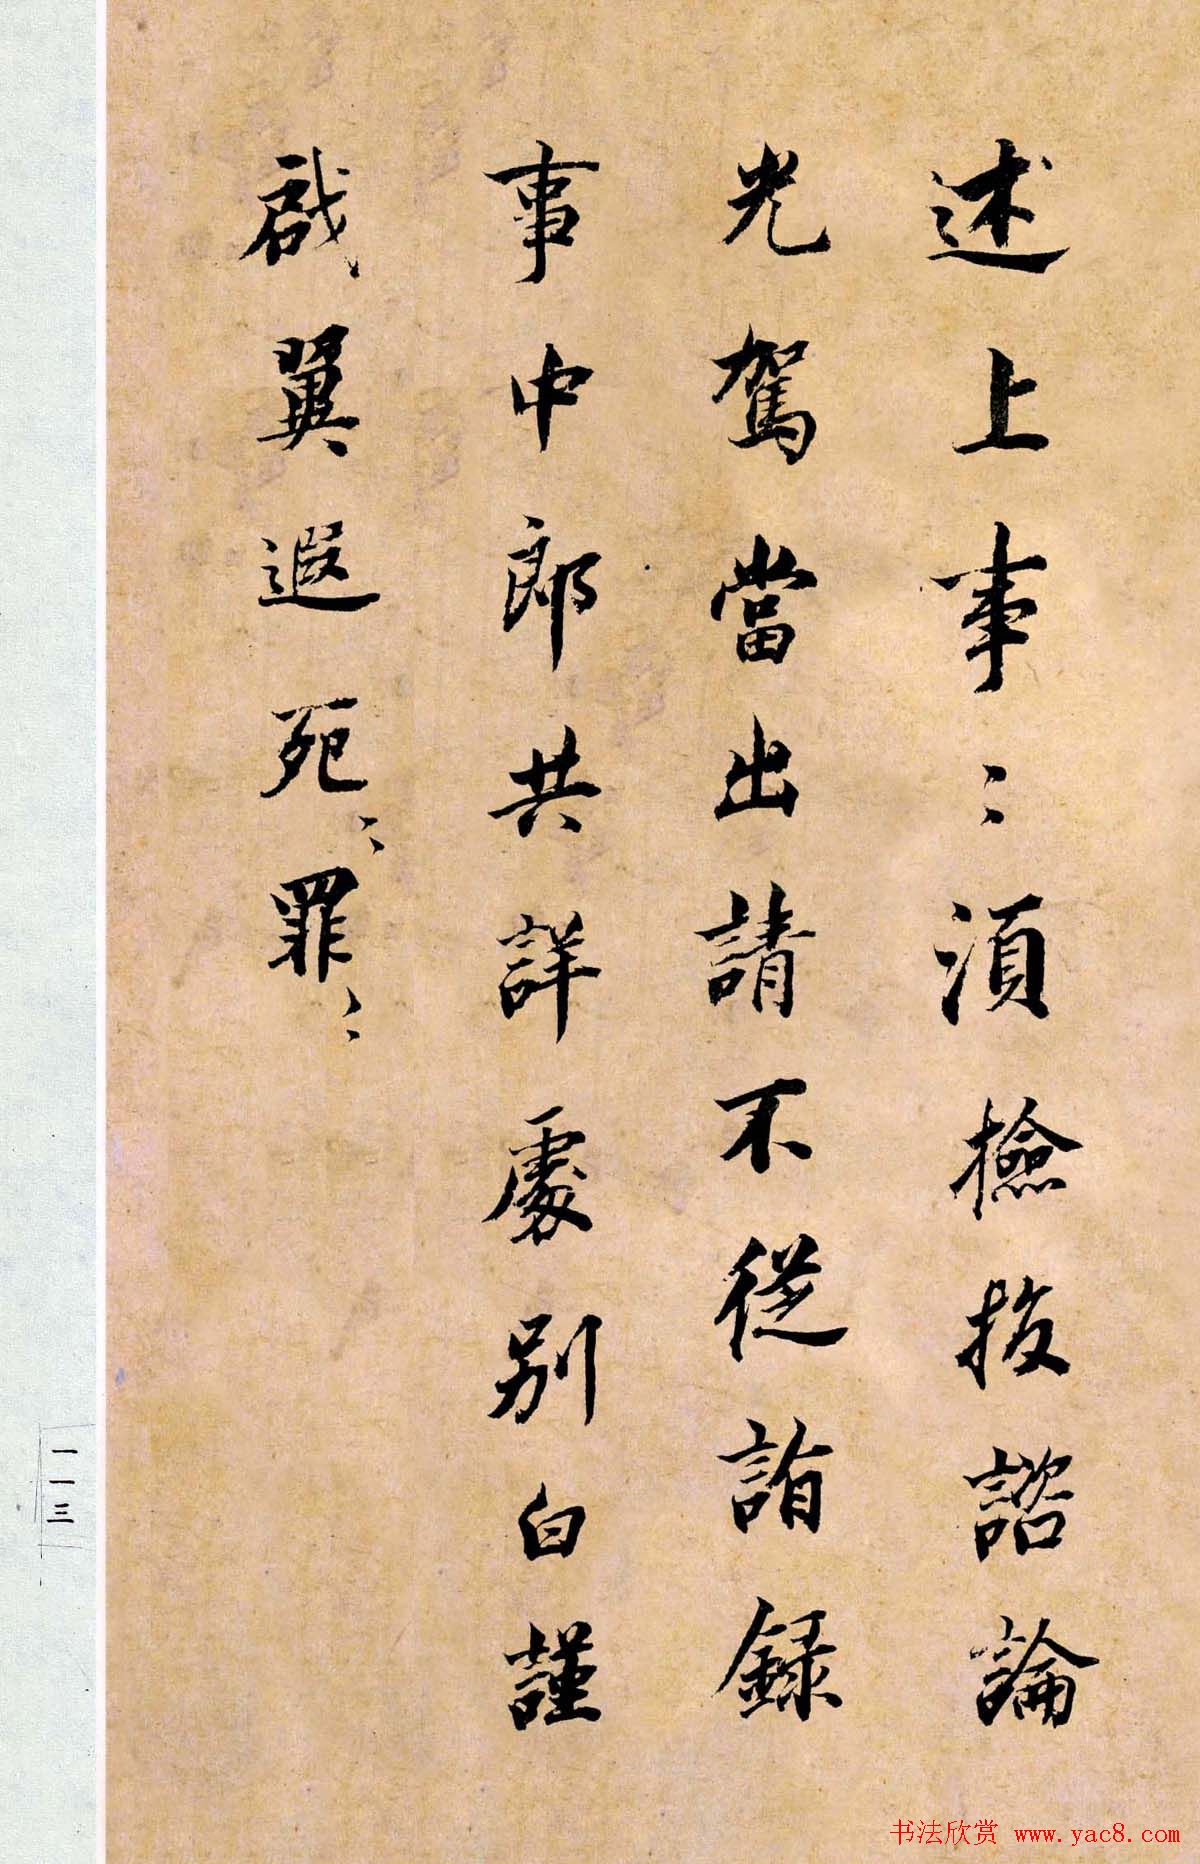 述上事〻須檢挍諮論
光駕當出請不從詣錄
事中郎共詳處別白謹
啟翼遐死〻罪〻
一一三
书法欣赏 www.yac8.com